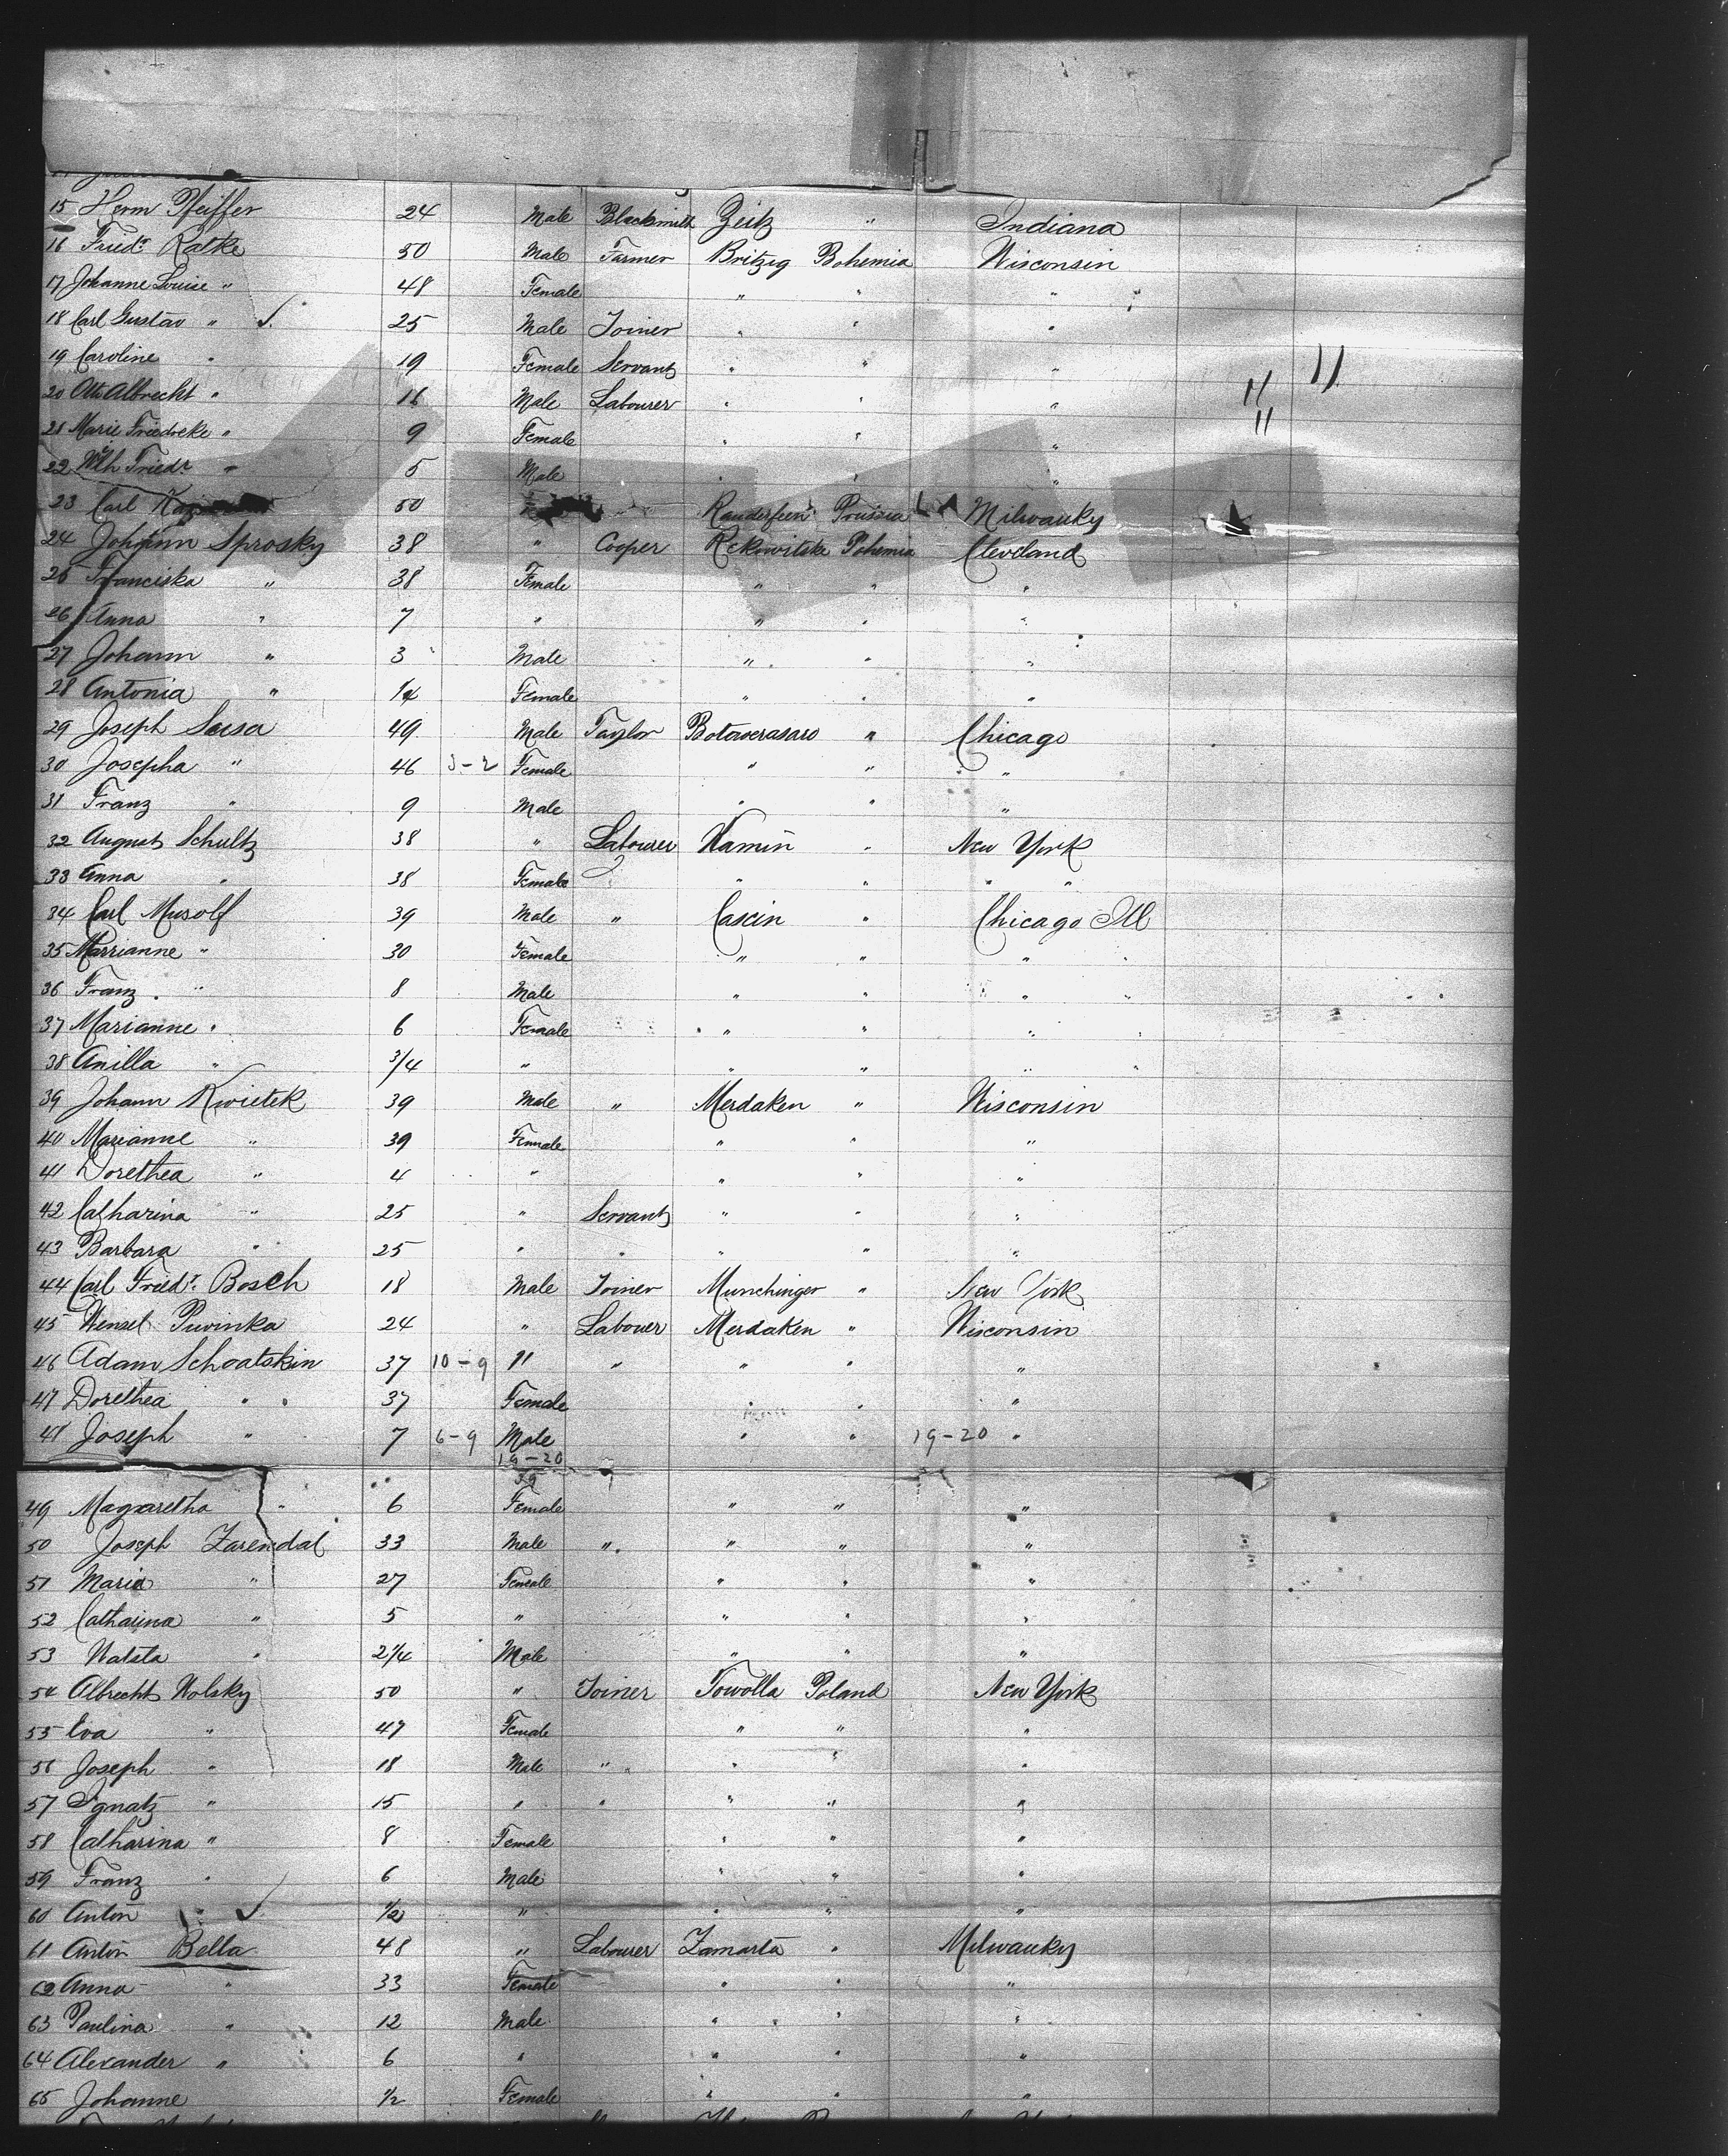 15 Herm Pfeiffer 24 Male Blacksmith Zeitz " Indiana
16 Friedr. Ratke 50 Male Farmer Britzig Bohemia Wisconsin
17 Johanne Louise " 48 Female " " "
18 Carl Gustav " 25 Male Joiner " " "
19 Caroline " 19 Female Servant " " "
20 Otto Albrecht " 16 Male Labourer " " "
21 Marie Friedreke " 9 Female " " "
22 Wilh Friedr " 5 Male " " "
23 Carl 50 Randerfeen Prussia Milwauky
24 Johann Sprosky 38 " Cooper Rekowitske Bohemia Cleveland
25 Franciska " 38 Female " " "
26 Anna " 7 " " " "
27 Johann " 3 Male " " "
28 Antonia " Female " " "
29 Joseph Susa 49 Male Taylor Botaverasaro " Chicago
30 Josepha " 46 3-2 Female " " "
31 Franz " 9 Male " " "
32 August Schultz 38 " Labourer Kamin " New York
33 Anna " 38 Female " " " "
34 Carl Musolf 39 Male " Cascin " Chicago Ill
35 Marrianne " 30 Female " " "
36 Franz " 8 Male " " " "
37 Marianne " 6 Female " " "
38 Anilla " 3/4 " " " "
39 Johann Kwietek 39 Male " Merdaken " Wisconsin
40 Marianne " 39 Female " " "
41 Dorethea " 4 " " " "
42 Catharina " 25 " Servant " " "
43 Barbara " 25 " " " " "
44 Carl Friedr. Bosch 18 Male Joiner Munchinger " New York
45 Wensel Puvinka 24 " Labouer Merdaken " Wisconsin
46 Adam Schoatskin 37 10-9 " " " " "
47 Dorethea " 37 Female " " "
48 Joseph " 7 6-9 Male " " 19-20 "
19-20
39
49 Magaretha " 6 Female " " "
50 Joseph Zarendal 33 Male " " " "
51 Maria " 27 Female " " "
52 Catharina " 5 " " " "
53 Watsta " 2 1/4 Male " " "
54 Albrecht Wolsky 50 " Joiner Towolla Poland New York
55 Eva " 47 Female " " "
56 Joseph " 18 Male " " " "
57 Ignatz " 15 " " " " "
58 Catharina " 8 Female " " "
59 Franz " 6 Male " " "
60 Anton " 1/2 " " " "
61 Anton Bella 48 " Labourer Zamarta " Milwauky
62 Anna " 33 Female " " "
63 Paulina " 12 Male " " "
64 Alexander " 6 " " " "
65 Johanne 1/2 Female " " "